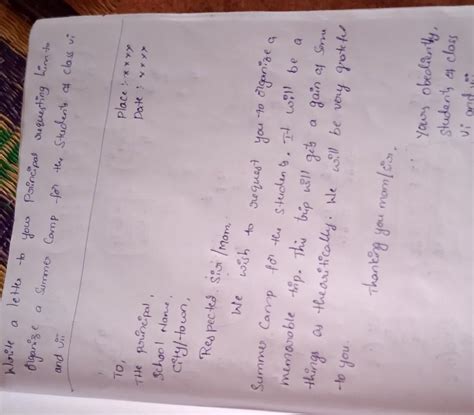 Write a letter to your principal requesting him to
organize a Summer Camp for the Students of class vi
and vii
Place : xxxx
Date : xxxx
To,
The principal,
School Name,
City/town,
Respected Sir/Mam
We wish to request you to organize a
Summer Camp for the Students. It will be a
memorable trip. This trip will get a gain of
things as theoritically. We will be very grateful
to you.
Thanking you mam/sir.
Yours obediently,
Students of class
vi and vii